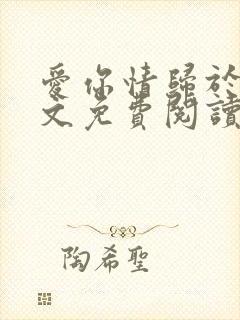 愛你情歸於
文免費閱讀
陶希聖